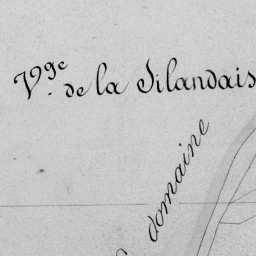 V.ge de la Silandais
domaine